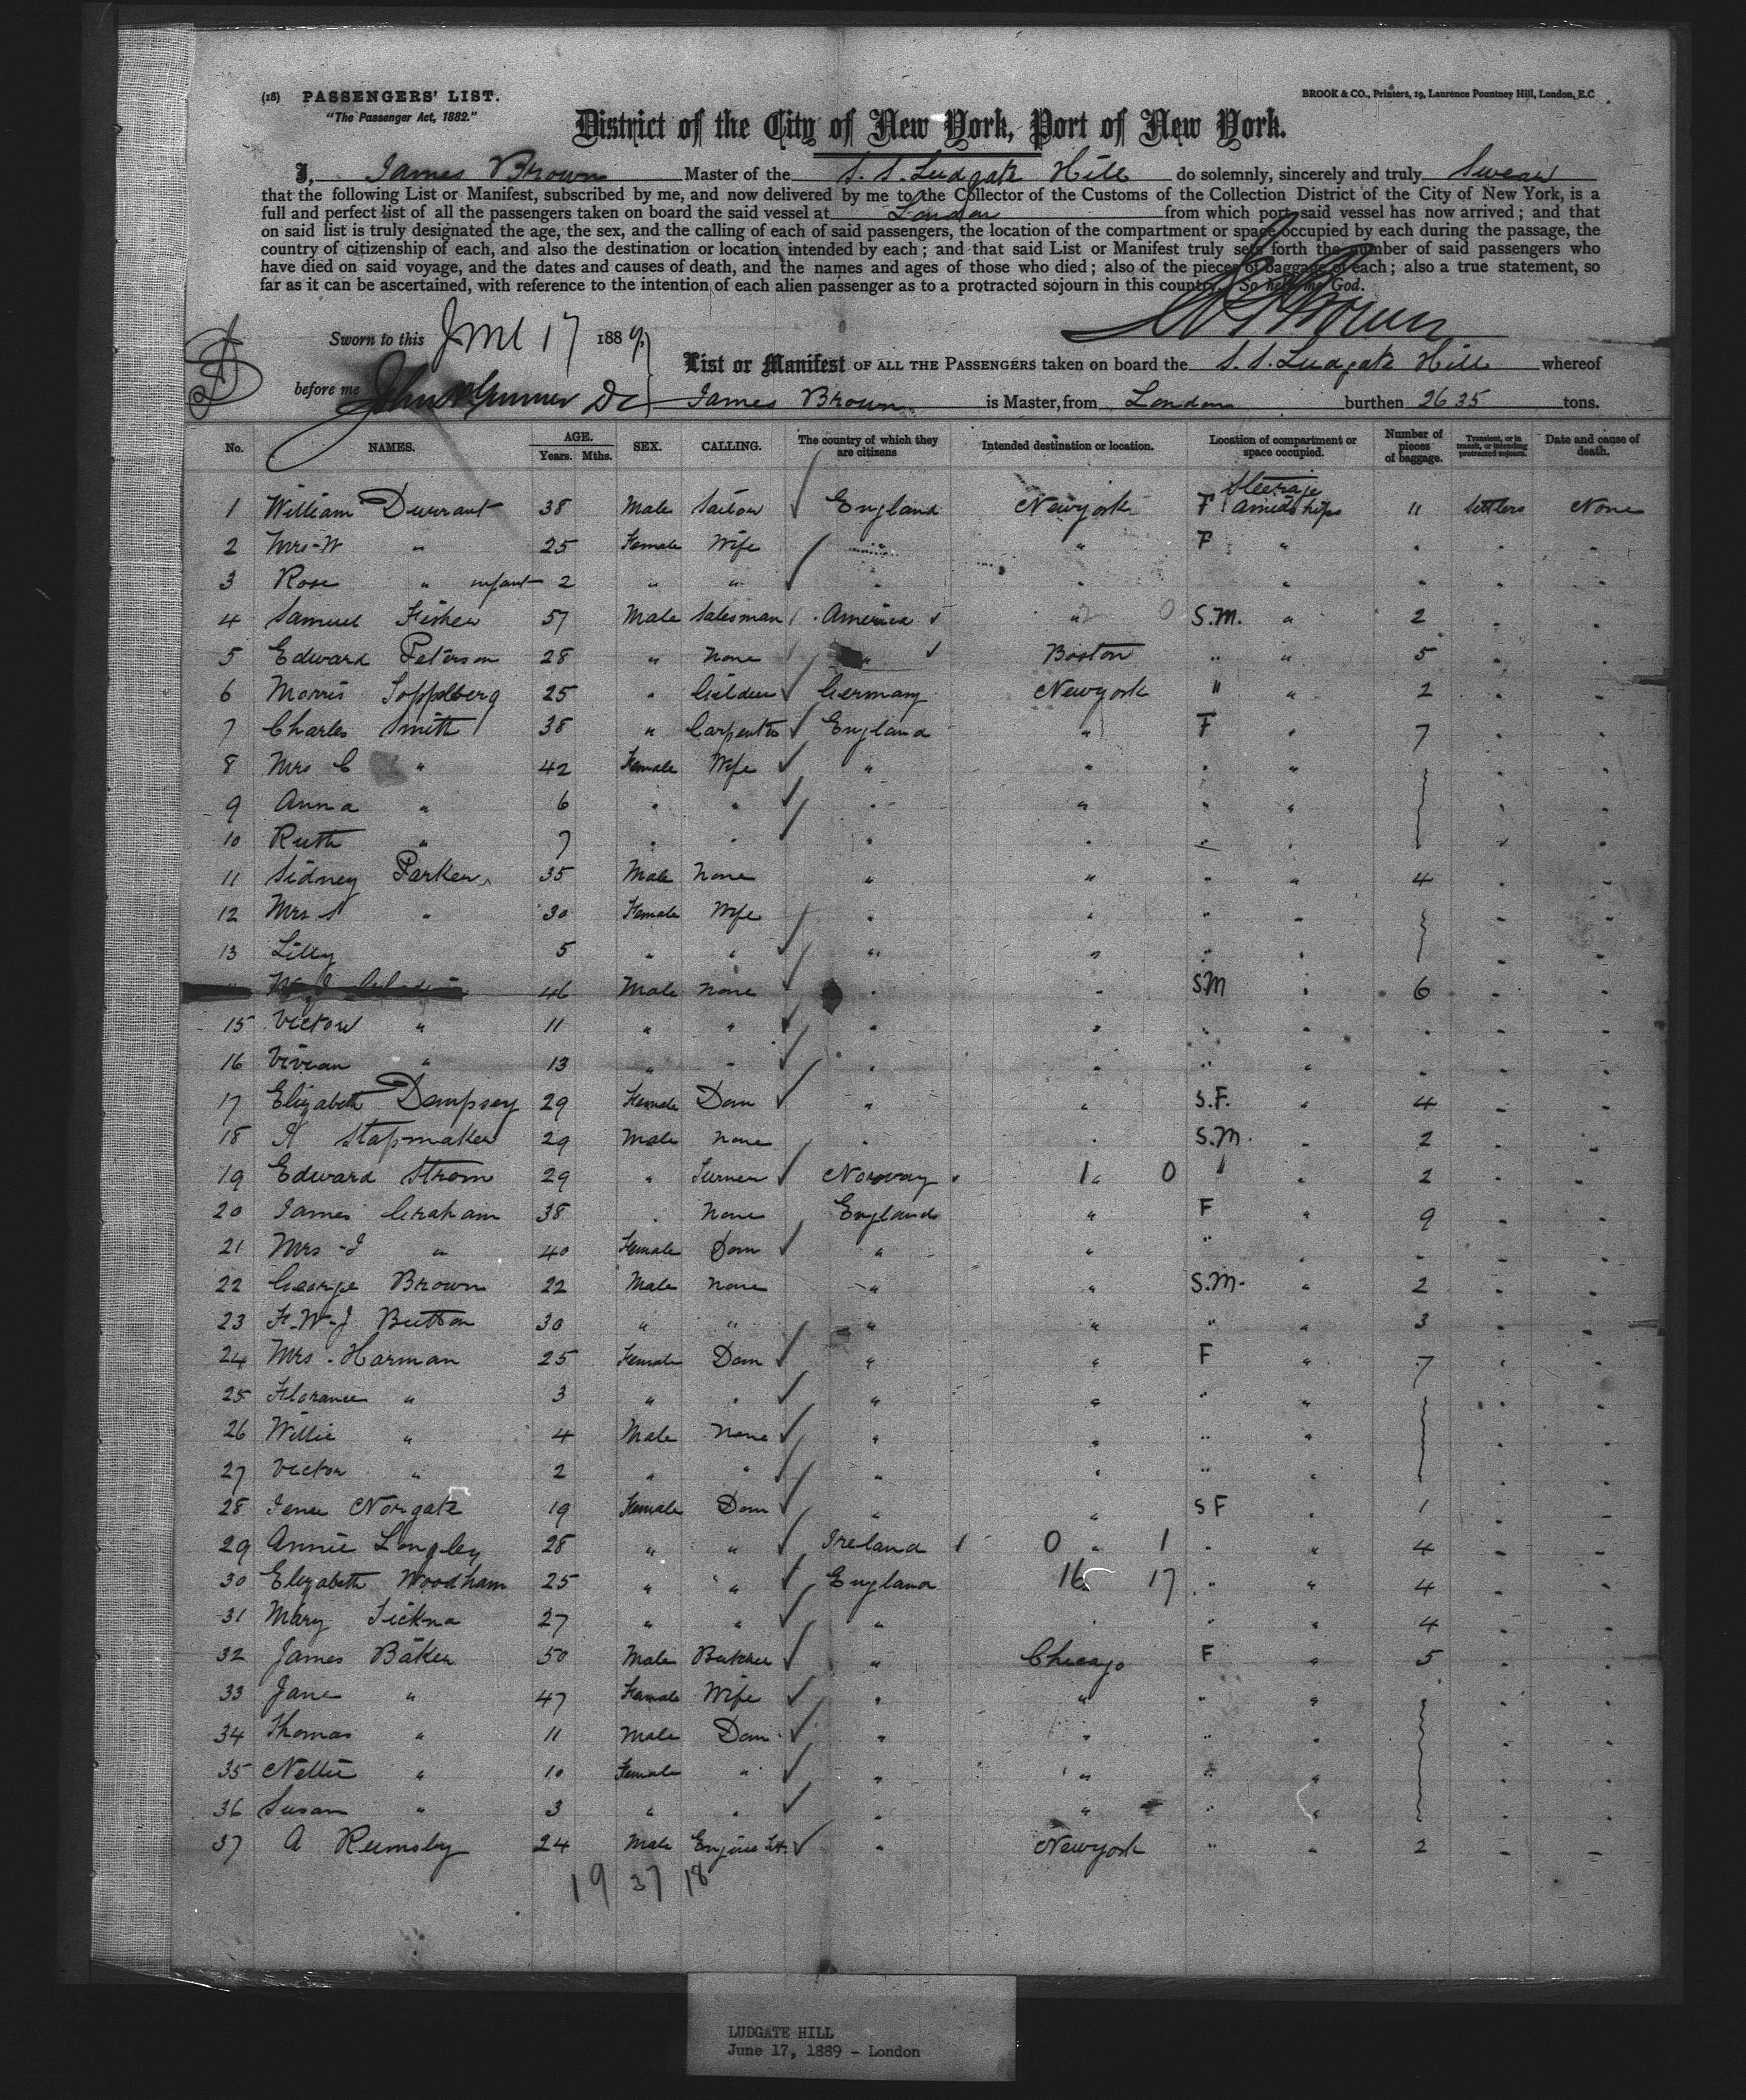 (18) PASSENGERS' LIST.
"The Passenger Act, 1882."
BROOK & CO., Printers, 19, Laurence Pountney Hill, London, E.C
District of the City of New York, Port of New York.
I, James Brown Master of the S. S. Ludgate Hill do solemnly, sincerely and truly Swear
that the following List or Manifest, subscribed by me, and now delivered by me to the Collector of the Customs of the Collection District of the City of New York, is a
full and perfect list of all the passengers taken on board the said vessel at London from which port said vessel has now arrived; and that
on said list is truly designated the age, the sex, and the calling of each of said passengers, the location of the compartment or space occupied by each during the passage, the
country of citizenship of each, and also the destination or location intended by each; and that said List or Manifest truly sets forth the number of said passengers who
have died on said voyage, and the dates and causes of death, and the names and ages of those who died; also of the pieces of baggage of each; also a true statement, so
far as it can be ascertained, with reference to the intention of each alien passenger as to a protracted sojourn in this country. So help me God.
Brown
Sworn to this June 17 1889
before me
List or Manifest OF ALL THE PASSENGERS taken on board the S. S. Ludgate Hill whereof
James Brown is Master, from London burthen 2635 tons.
No. NAMES. AGE. Years. Mths. SEX. CALLING. The country of which they are citizens Intended destination or location. Location of compartment or space occupied. Number of pieces of baggage. Transient, or in transit, or intending protracted sojourn. Date and cause of death.
1 William Durrant 38 Male Sailor England Newyork F Steerage Amidships 11 Settlers None
2 Mrs W " 25 Female Wife " " F " " " "
3 Rose " infant 2 " " " " " " " "
4 Samuel Fisher 57 Male Salesman America " S.M. " 2 " "
5 Edward Peterson 28 " None " Boston " " 5 " "
6 Morris 25 " Gilder Germany Newyork " " 2 " "
7 Charles Smith 38 " Carpenter England " F " 7 " "
8 Mrs C " 42 Female Wife " " " " " "
9 Anna " 6 " " " " " " " "
10 Ruth " 7 " " " " " " " "
11 Sidney Parker 35 Male None " " " " 4 " "
12 Mrs S " 30 Female Wife " " " " " "
13 Lilly 5 " " " " " " " "
46 Male None " " S.M " 6 " "
15 Victor " 11 " " " " " " " " "
16 Vivian " 13 " " " " " " " " "
17 Elizabeth Dempsey 29 Female Dom " " S.F. " 4 " "
18 Stapmaker 29 Male None " " S.M. " 2 " "
19 Edward Strom 29 " Turner Norway 1 " 0 " " 2 " "
20 James Graham 38 " None England " F " 9 " "
21 Mrs J " 40 Female Dom " " " " " " "
22 George Brown 22 Male None " " S.M. " 2 " "
23 F. W. J Button 30 " " " " " " 3 " "
24 Mrs Harman 25 Female Dom " " F " 7 " "
25 Florance " 3 " " " " " " " "
26 Willie " 4 Male None " " " " " "
27 Victor " 2 " " " " " " " "
28 Norgate 19 Female Dom " " S F " 1 " "
29 Annie Longley 28 " " Ireland 0 " 1 " " 4 " "
30 Elizabeth Woodham 25 " " England 16 17 " " 4 " "
31 Mary Tickna 27 " " " " " " 4 " "
32 James Baker 50 Male Butcher " Chicago F " 5 " "
33 Jane " 47 Female Wife " " " " " "
34 Thomas " 11 Male Dom " " " " " "
35 Nellie " 10 Female " " " " " " "
36 Susan " 3 " " " " " " " "
37 A Rumsby 24 Male Engine Ftr " Newyork " " 2 " "
19 37 18
LUDGATE HILL
June 17, 1889 - London